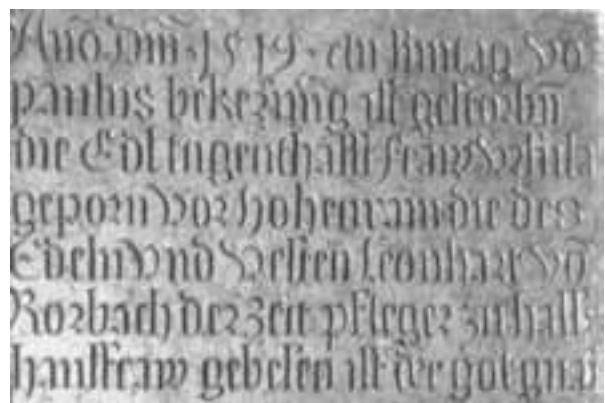 Año dm̄ · 1519 · am suntag vō
paulus bekerūng ist gestorbn̄
die Edl tugenthafft fraw Vrsula
geporn von hohenrain die des
Edeln Vnd Vesten Leonhart Vō
Rorbach der zeit pfleger zu hall
hausfraw gebesen ist der got gnad